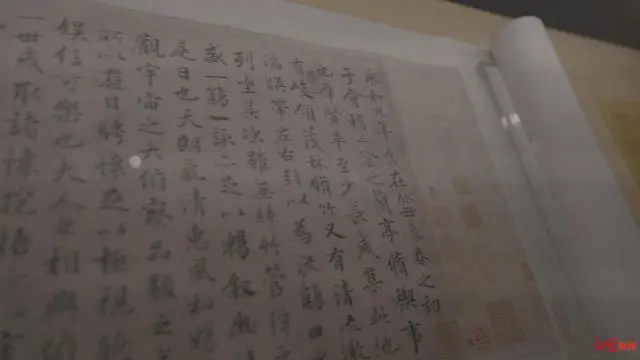 永和九年歲在癸丑暮春之初
于會稽山陰之蘭亭脩禊事
也群賢畢至少長咸集此地
有峻領茂林脩竹又有清流激
湍暎帶左右引以為流觴曲
列坐其次雖無絲竹管弦之
盛一觴一詠亦足以暢敘幽
是日也天朗氣清惠風和暢
觀宇宙之大俯察品類之
所以遊目騁懷足以極視聽
娛信可樂也夫人之相與俯
一世或取諸懷抱悟言一室
新闻